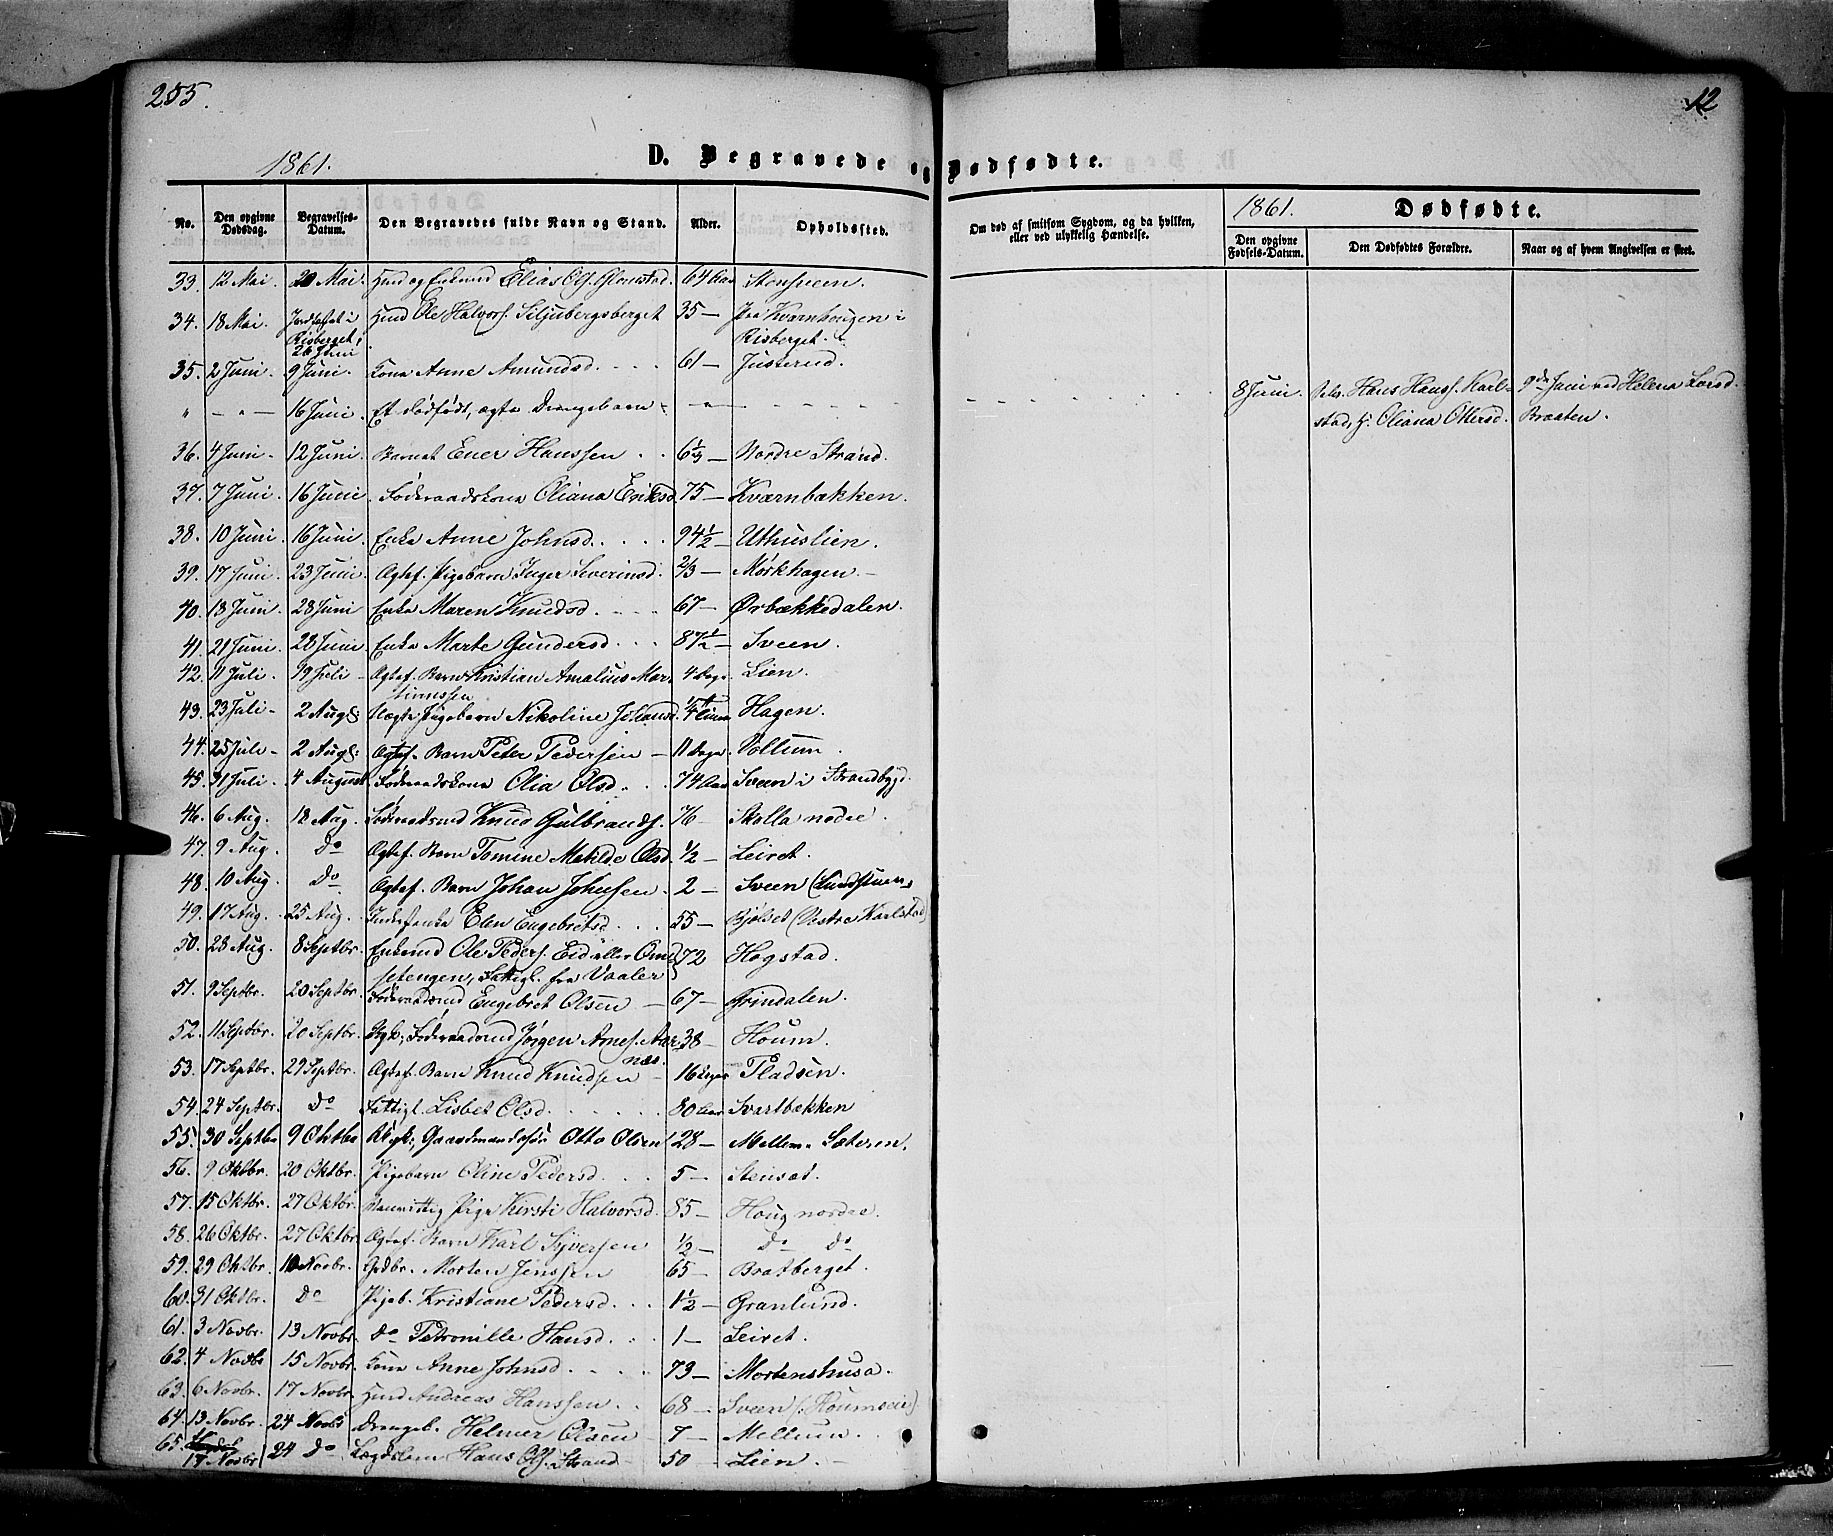 255.
12
1861.
D. Begravede og Dødfødte.
No. Den opgivne Dødsdag. Begravelses-Datum. Den Begravedes fulde Navn og Stand. Alder. Opholdssted. Om død af smitsom Sygdom, og da hvilken, eller ved ulykkelig Hændelse.
1861. Dødfødte.
Den opgivne Fødsels-Datum. Den Dødfødtes Forældre. Naar og af hvem Angivelsen er skeet.
33. 12 Mai. 20 Mai. Elias Ols. 64 Aar Stensveen.
34. 18 Mai. Jordfæstet i Ole Halvors. Siljubergsberget 35 — Paa Kvarnhougen i
Risberget; Risberget.
26 Juni
35. 2 Juni. 9 Juni. Kone Anne Amundsd. 61 — Justerud.
" — " — 16 Juni. Et dødfødt, ægte Drengebarn — " — 8 Juni. Hans Hanss. Karl- 9de Juni ved Helena Larsd.
stad, H. Oliana Ottersd. Braaten.
36. 4 Juni. 12 Juni. Barnet Ener Hanssen 6 1/3 — Nordre Strand.
37. 7 Juni. 16 Juni. Føderaadskone Oliana Eriksd. 75 — Kværnbækken.
38. 10 Juni. 16 Juni. Enke Anne Johnsd. 94 1/2 — Uthuslien.
39. 17 Juni. 23 Juni. Ægtef. Pigebarn Inger Severinsd. 2/3 — Mørkhagen.
40. 18 Juni. 28 Juni Enke Maren Knudsd. 67 — Ørbækkedalen.
41. 21 Juni. 28 Juni. Enke Marte Gundersd. 87 1/2 — Sveen.
42. 11 Juli. 19 Juli — Ægtef. Barn Kristian Amalius Mar- 4 Dage Lien.
tinussen
43. 23 Juli — 2 Aug. Uægte Pigebarn Nikoline Johansd. 1/4 Time Hagen.
44. 25 Juli — 2 Aug. Ægtef. Barn Peter Pedersen — 11 Dage. Vollum.
45. 31 Juli. 4 August Føderaadskone Olia Olsd. 74 Aar Sveen i Strandbygd.
46. 6 Aug. 18 Aug. Føderaadsmd Knud Gulbrands. 76 — Skolla nordre.
47. 9 Aug. Do Ægtef. Barn Tomine Matilde Olsd. 1/2 — Leiret.
48. 10 Aug. Do Ægtef. Barn Johan Johnsen. 2 — Sveen (Lundstuen)
49. 17 Aug. 25 Aug. Elen Engebretsd. 55 — Bjølset (Vestre Karlstad)
50. 28 Aug. 8 Septbr. Enkemd Ole Peders. Eid eller Omd 72 Hogstad.
setengen, Fattigl. fra Vaaler
51. 9 Septbr. 20 Septbr. Føderaadsmd Engebret Olsen — 67 — Grindalen.
52. 11 Septbr. 20 Septbr. Ugk. Føderaadsmd Jørgen Arnes. Aar- 38 — Houm.
næs.
53. 17 Septbr. 29 Septbr. Ægtef. Barn Knud Knudsen — 16 Uger Pladsen.
54. 24 Septbr. Do Fattigl. Lisbet Olsd. 80 Aar Svartbækken
55. 30 Septbr 9 Oktbr Ugk. Gaardmandssøn Otto Olsen 28 — Mellem Sæteren.
56. 9 Oktbr. 20 Oktbr. Pigebarn Oline Pedersd. 5 — Stensæt.
57. 15 Oktbr. 27 Oktbr. Vanvittig Pige Kirsti Halvorsd. 85 — Houg nordre.
58. 26 Oktbr. 27 Oktbr. Ægtef. Barn Karl Syversen 1/2 — Do Do
59. 29 Oktbr. 10 Novbr. Gdbr. Morten Jenssen 65 — Bratberget.
60. 31 Oktbr. Do Pigeb. Kristiane Pedersd. 1 1/2 — Granlund.
61. 3 Novbr. 13 Novbr. Do Petronille Hansd. 1 — Leiret.
62. 4 Novbr 15 Novbr. Kone Anne Johnsd. 73 — Mortenshusa.
63. 6 Novbr. 17 Novbr. Andreas Hanssen. 68 — Sveen (Houmseie)
64. 13 Novbr. 24 Novbr Drengeb. Helmer Olsen — 7 — Mellum.
65. 17 Novbr 24 Do Lægdslem Hans Ols. Strand 50 — Lien.